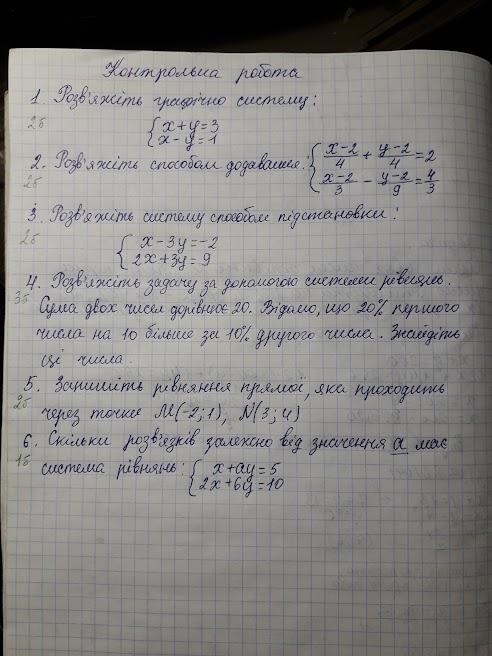 Контрольна робота
1. Розв'яжіть графічно систему:
2б
{x+y=3
x-y=1
2. Розв'яжіть способом додавання: {(x-2)/4 + (y-2)/4 = 2
2б
(x-2)/3 - (y-2)/9 = 4/3
3. Розв'яжіть систему способом підстановки:
2б
{x-3y=-2
2x+3y=9
4. Розв'яжіть задачу за допомогою системи рівнянь.
3б
Сума двох чисел дорівнює 20. Відомо, що 20% першого
числа на 10 більше за 10% другого числа. Знайдіть
ці числа.
5. Запишіть рівняння прямої, яка проходить
2б
через точки M(-2;1), N(3;4)
6. Скільки розв'язків залежно від значення a має
1б
система рівнянь: {x+ay=5
2x+6y=10